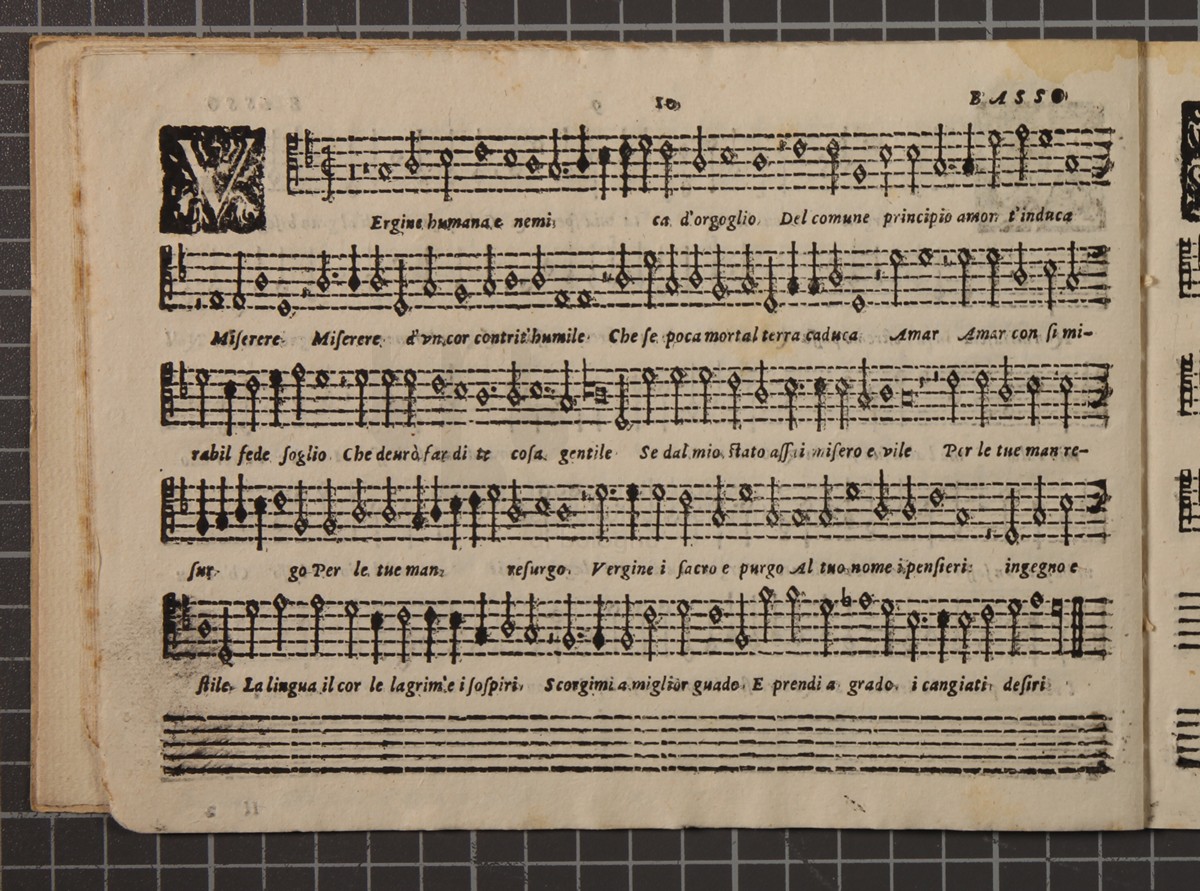 10 BASSO
VErgine humana e nemi ca d'orgoglio Del comune principio amor t'induca
Miserere Miserere d'vn cor contrit'humile Che se poca mortal terra caduca Amar Amar con si mi-
rabil fede soglio Che deurò far di te cosa gentile Se dal mio stato assai misero e vile Per le tue man re-
sur- go Per le tue man resurgo Vergine i sacro e purgo Al tuo nome i pensieri ingegno e
stile La lingua il cor le lagrime i sospiri Scorgimi a miglior guado E prendi a grado i cangiati desiri